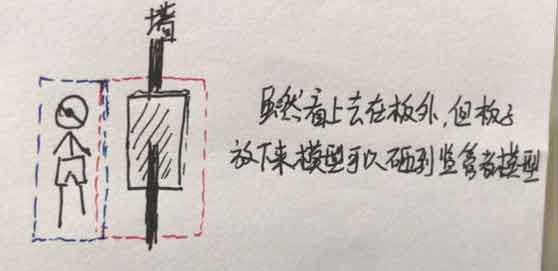 墙
虽然看上去在板外,但板子
放下来模型可以砸到监管者模型